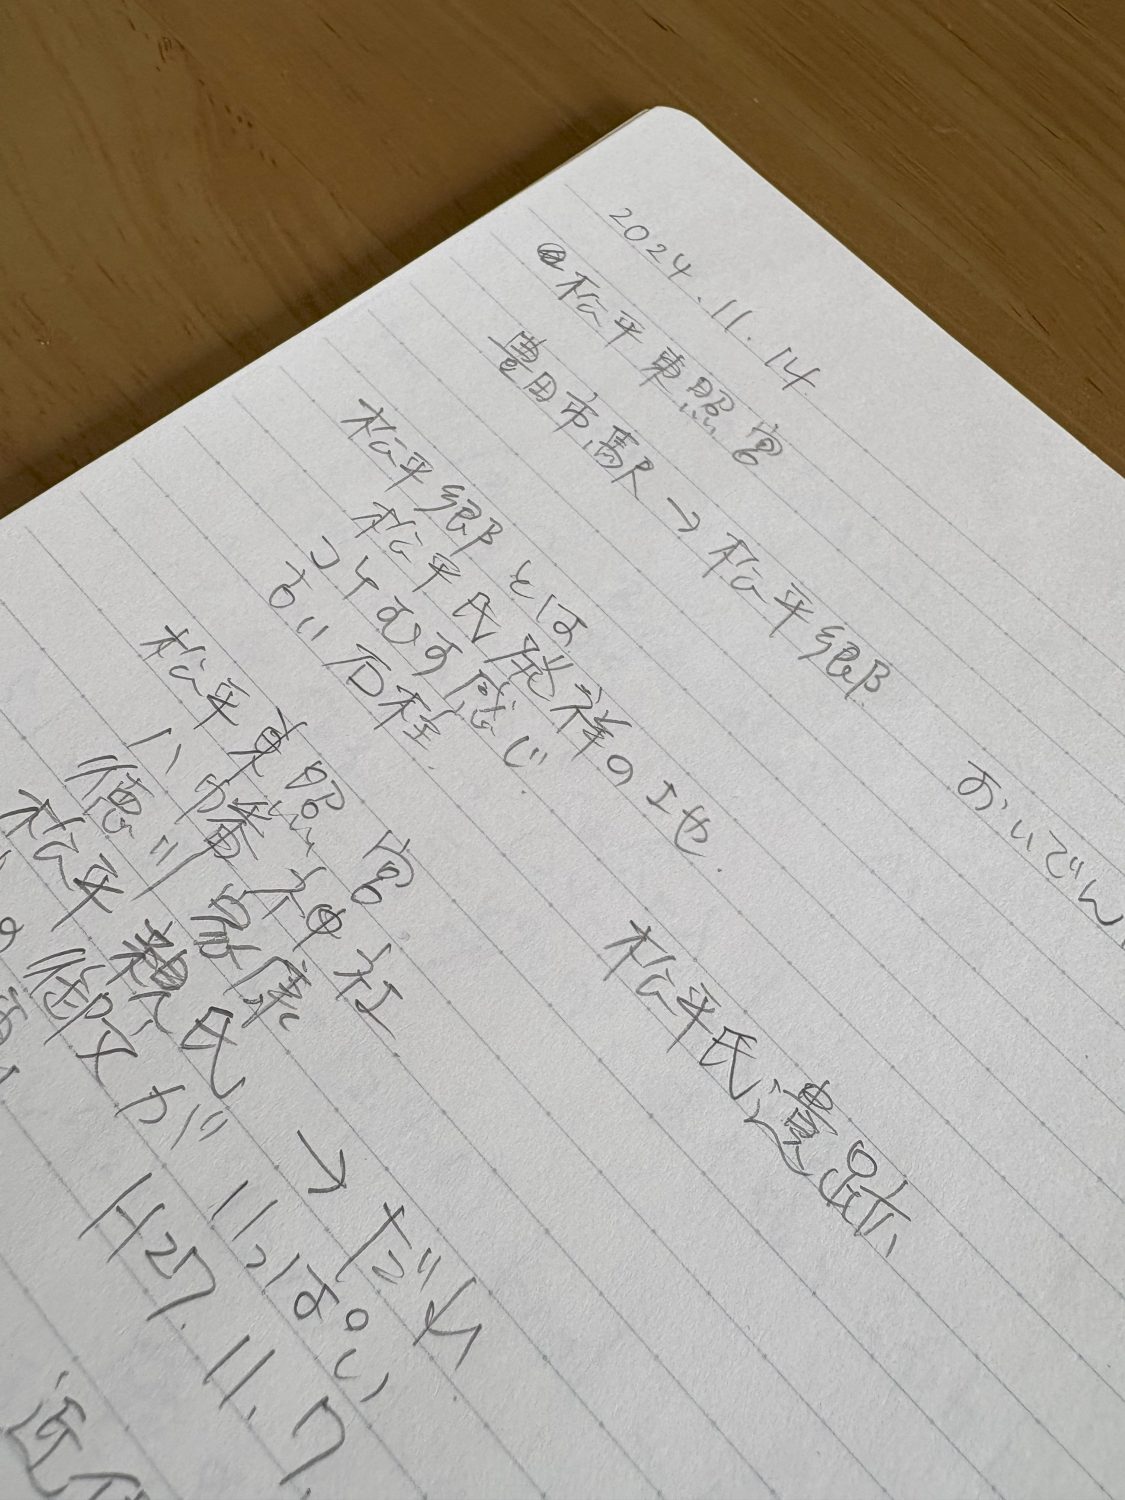 2024.11.14
@松平東照宮
豊田市駅→松平郷 おいでん
松平郷とは
松平氏発祥の地.
コケむす感じ
古い石程.
松平氏遺跡
松平東照宮
八幡神社
徳川家康
松平親氏 → だれ
御文が いっぱい
H27.11.7.